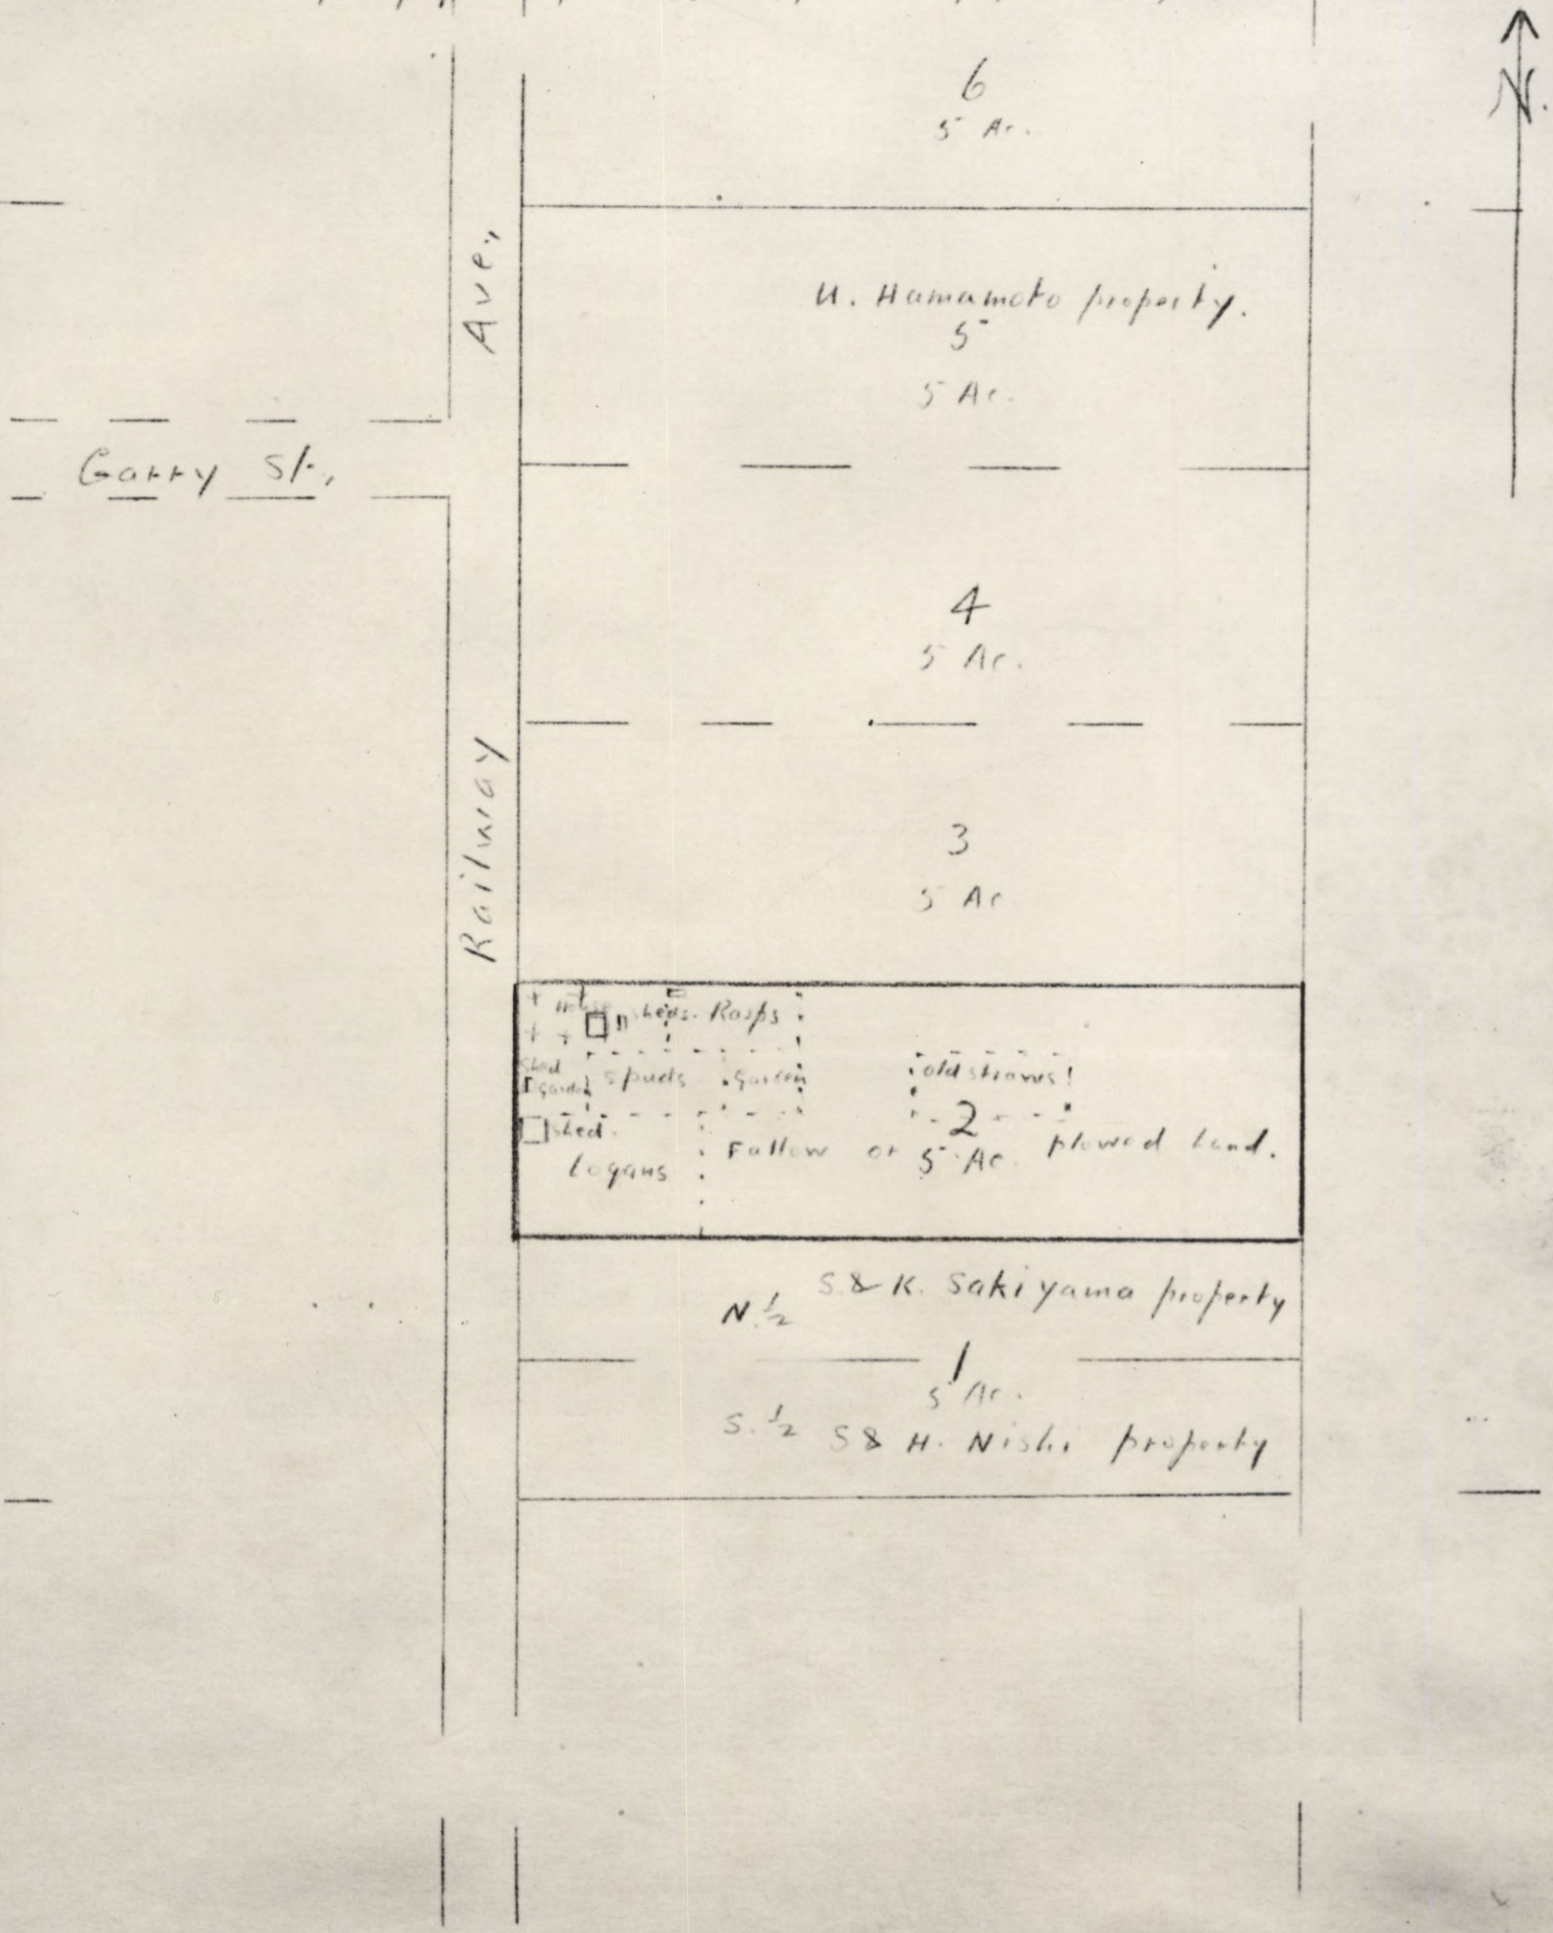 N.
6
5 Ac.
Ave.,
U. Hamamoto property.
5
5 Ac.
Garry St.,
4
5 Ac.
Railway
3
5 Ac
House sheds. Rasps
shed
garden spuds garden
old straws
2
shed.
Fallow or 5 Ac. plowed land.
Logans
S. & K. Sakiyama property
N. 1/2
1
5 Ac.
S. 1/2 S & H. Nishi property